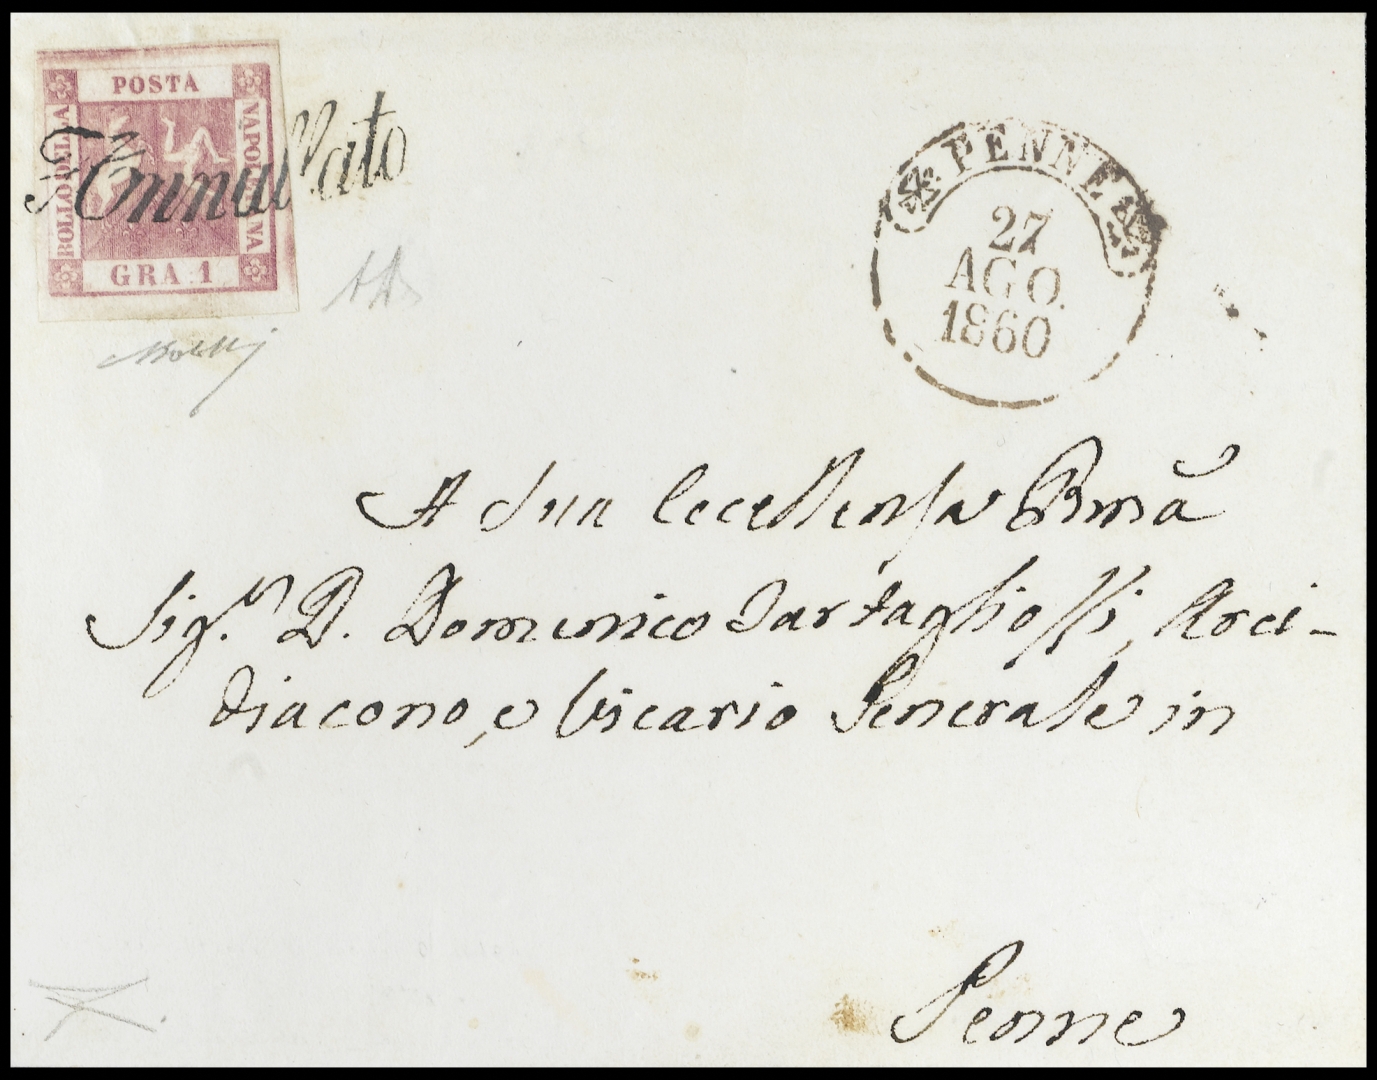 POSTA
BOLLO DELLA
NAPOLETANA
GRA. 1
Annullato
PENNE
27
AGO.
1860
A Sua Eccellenza Rmã
Sig.r D. Domenico Tartagliozzi, Arci-
diacono, e Vicario Generale in
Penne